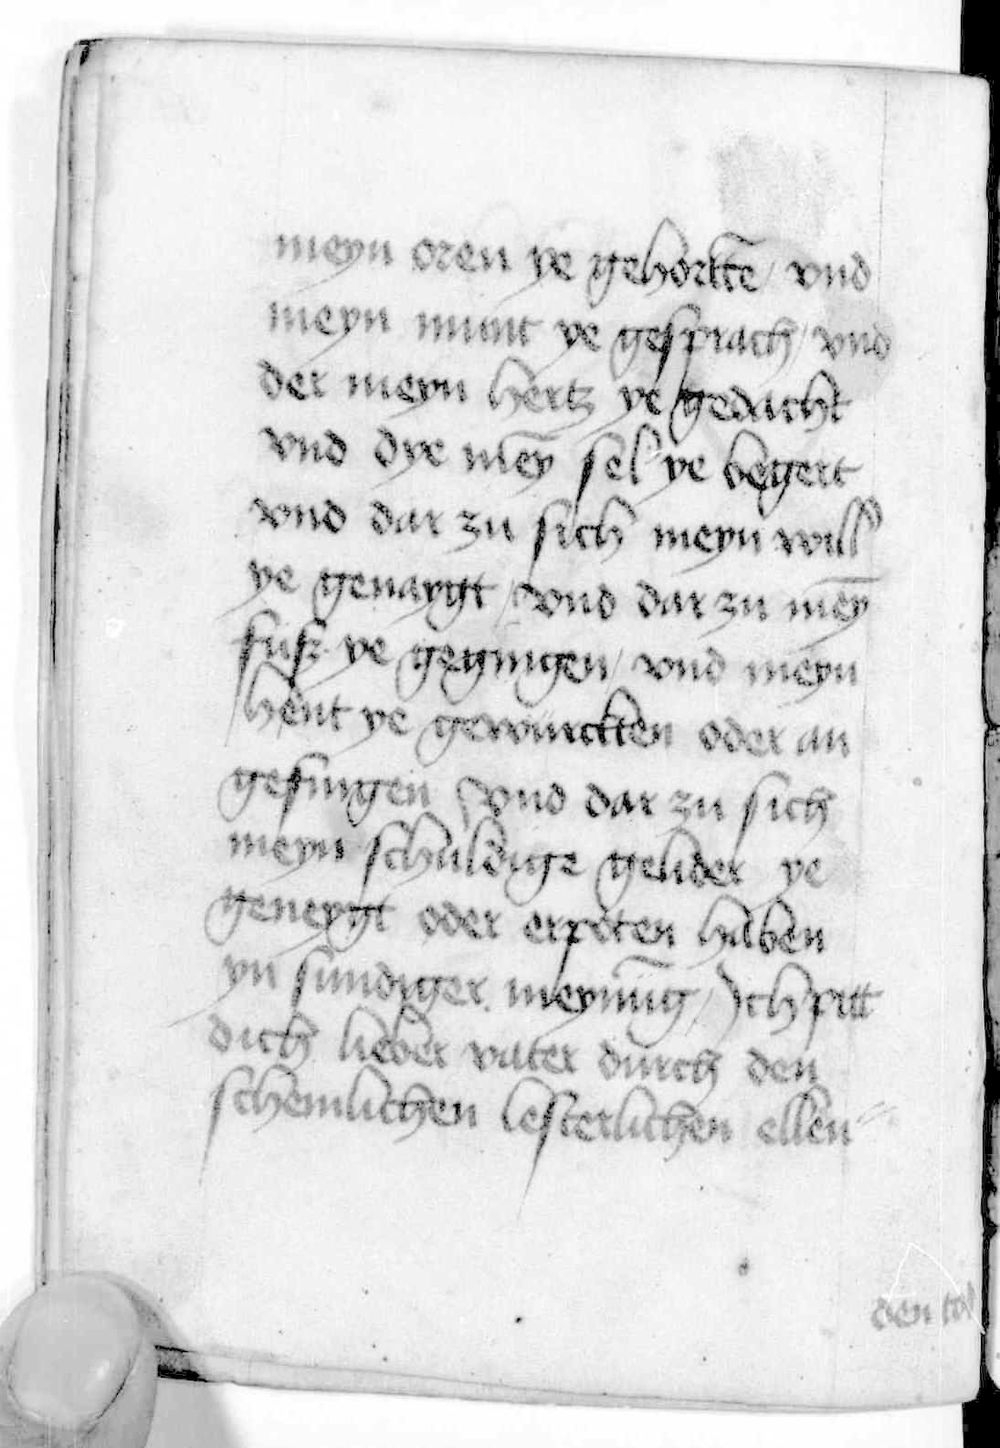 meyn oren ye gehortē / vnd
meyn munt ye gesprach / vnd
der meyn hertz ye gedacht
vnd dye mey̅ sel ye begert
vnd dar zu sich meyn will
ye genaygt / vnd dar zu mey̅
fuß ye gegingen / vnd meyn
hent ye gewurckten oder an
gefingen / vnd dar zu sich
meyn schuldige gelider ye
geneygt oder erpoten haben
yn sundiger meynu̅g / Ich pitt
dich lieber vater durch den
schemlichen lesterlichen ellen-
den tod